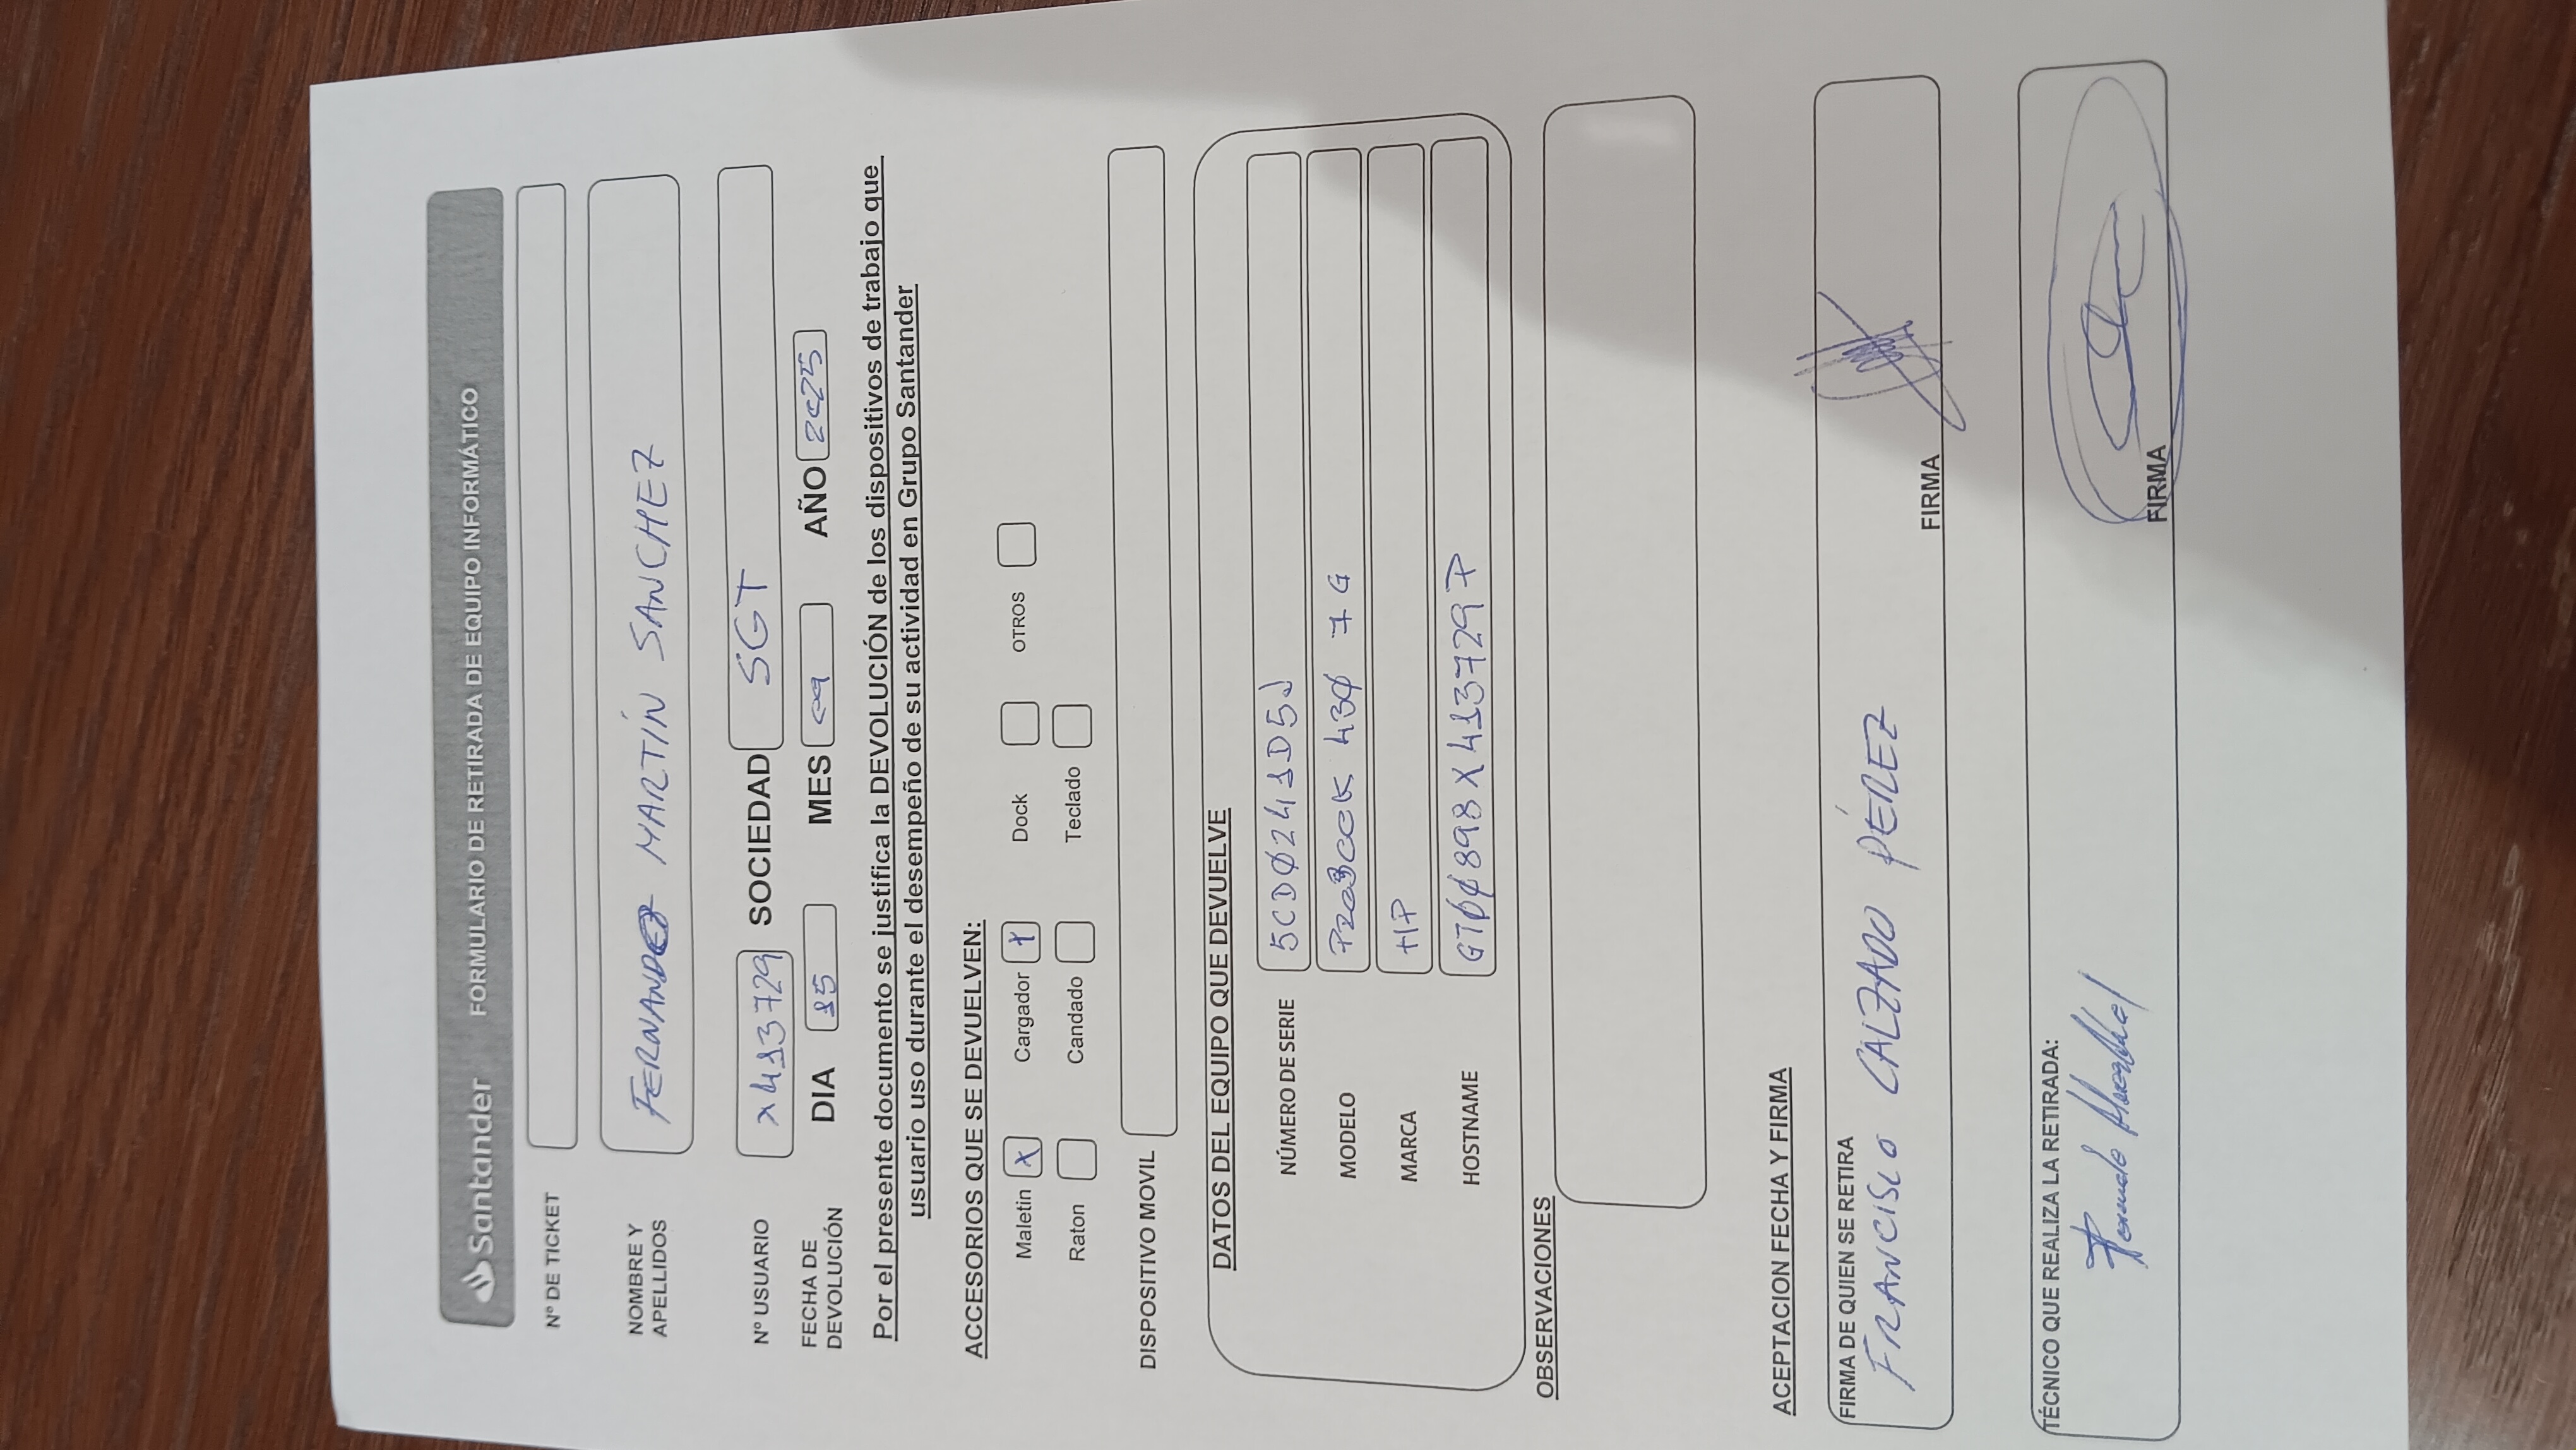 Santander FORMULARIO DE RETIRADA DE EQUIPO INFORMÁTICO
Nº DE TICKET
NOMBRE Y APELLIDOS MARTÍN SANCHEZ
Nº USUARIO X413729 SOCIEDAD SGT
FECHA DE DEVOLUCIÓN DIA 15 MES 09 AÑO 2025
Por el presente documento se justifica la DEVOLUCIÓN de los dispositivos de trabajo que
usuario uso durante el desempeño de su actividad en Grupo Santander
ACCESORIOS QUE SE DEVUELVEN:
Maletin X Cargador X Dock OTROS
Raton Candado Teclado
DISPOSITIVO MOVIL
DATOS DEL EQUIPO QUE DEVUELVE
NÚMERO DE SERIE 5CD0241D5J
MODELO PROBOOK 430 7G
MARCA HP
HOSTNAME GT00898X413729P
OBSERVACIONES
ACEPTACION FECHA Y FIRMA
FIRMA DE QUIEN SE RETIRA
FRANCISCO CALZADO PÉREZ
FIRMA
TÉCNICO QUE REALIZA LA RETIRADA:
FIRMA